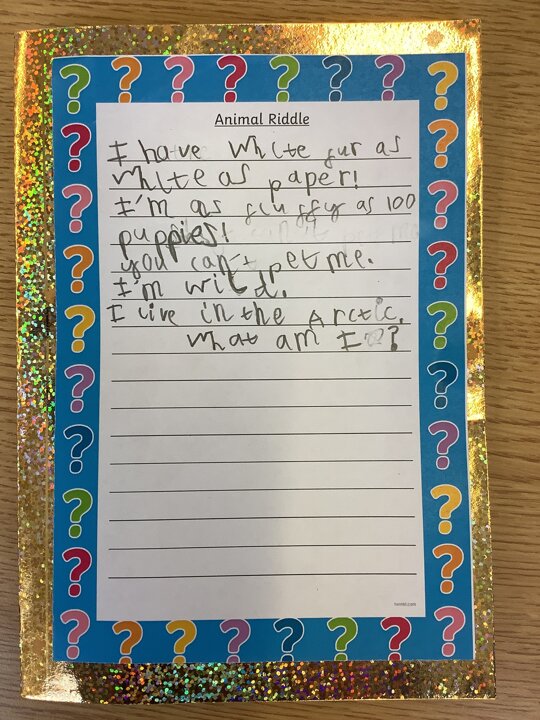 Animal Riddle
I have white fur as
white as paper!
I'm as fluffy as 100
puppies!
you can't pet me.
I'm wild.
I live in the Arctic.
What am I?
twinkl.com